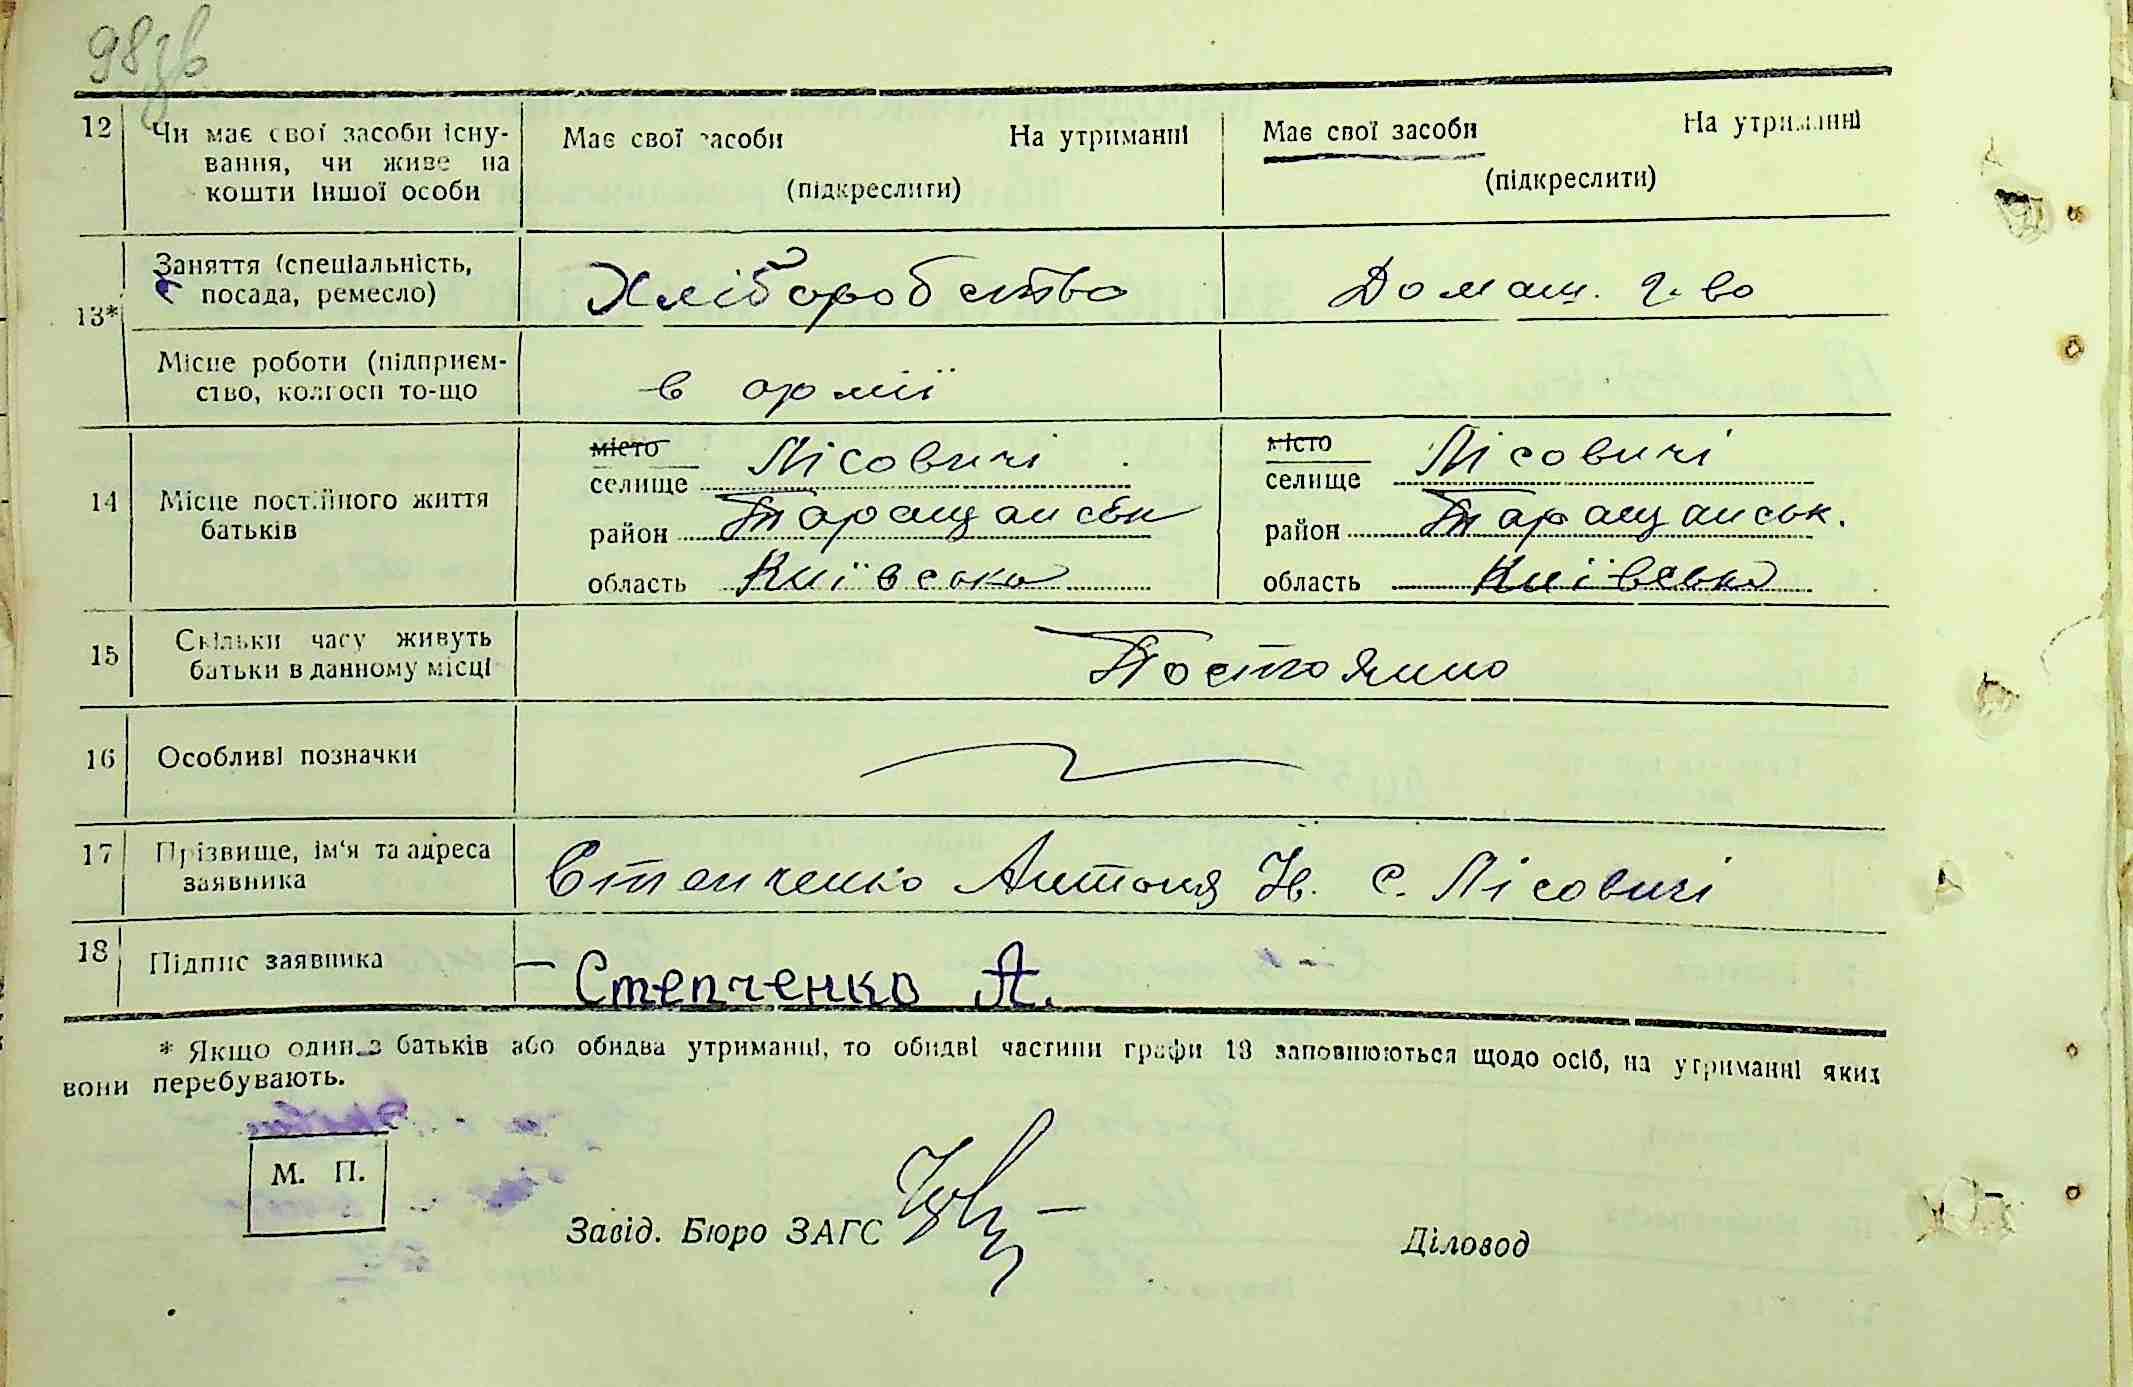 98зв
12 Чи має свої засоби існу-
вання, чи живе на
кошти іншої особи
Має свої засоби На утриманні
(підкреслити)
Має свої засоби На утриманні
(підкреслити)
13* Заняття (спеціальність,
посада, ремесло)
Хліборобство
Домаш. г-во
Місце роботи (підприєм-
ство, колгосп то-що
в армії
14 Місце постійного життя
батьків
місто
селище Лісовичі
район Таращанськ
область Київська
місто
селище Лісовичі
район Таращанськ.
область Київська
15 Скільки часу живуть
батьки в данному місці
Постоянно
16 Особливі позначки
17 Прізвище, ім'я та адреса
заявника
Степченко Антоня Ів. С. Лісовичі
18 Підпис заявника
Степченко А.
* Якщо один з батьків або обидва утриманці, то обидві частини графи 13 заповнюються щодо осіб, на утриманні яких
вони перебувають.
М. П.
Завід. Бюро ЗАГС
Діловод